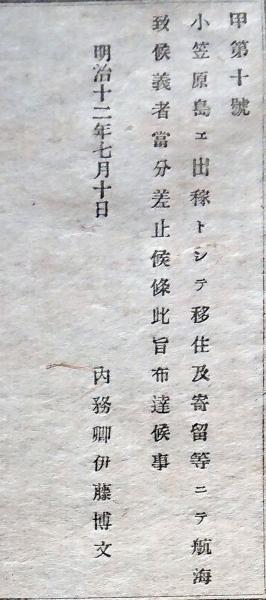 甲第十號
小笠原島エ出稼トシテ移住及寄留等ニテ航海
致候義者當分差止候條此旨布達候事
明治十二年七月十日
內務卿伊藤博文